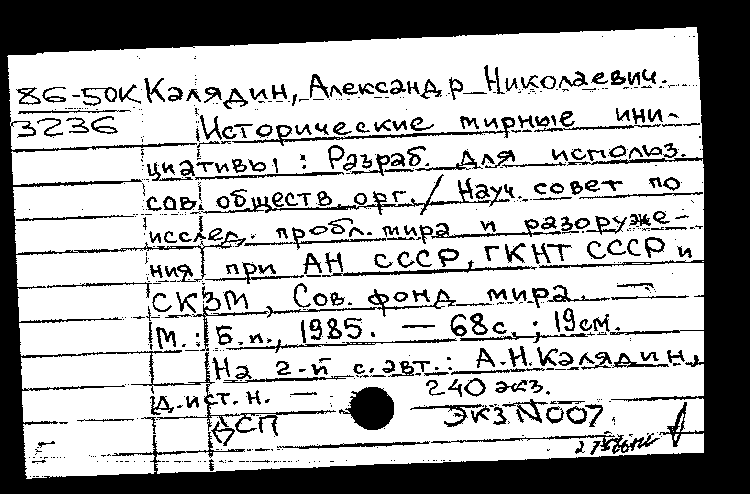 86-50К Калядин, Александр Николаевич.
3236 Исторические мирные ини-
циативы : Разраб. для использ.
сов. обществ. орг. / Науч. совет по
исслед. пробл. мира и разоруже-
ния при АН СССР, ГКНТ СССР и
СКЗМ, Сов. фонд мира. —
М. : Б.и., 1985. — 68 с. ; 19 см.
На 2-й с. авт. : А.Н. Калядин,
д.ист.н. — 240 экз.
ДСП ЭКЗ N007